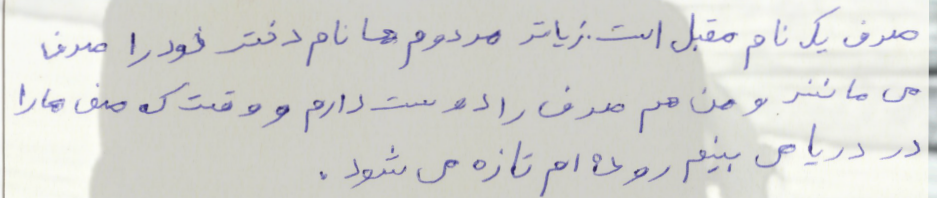 صدف یک نام مقبل است. زیاتر مردوم ها نام دختر خود را صدف
می مانند و من هم صدف را دوست دارم و وقت که صف ها را
در دریا می بینم روح ام تازه می شود.